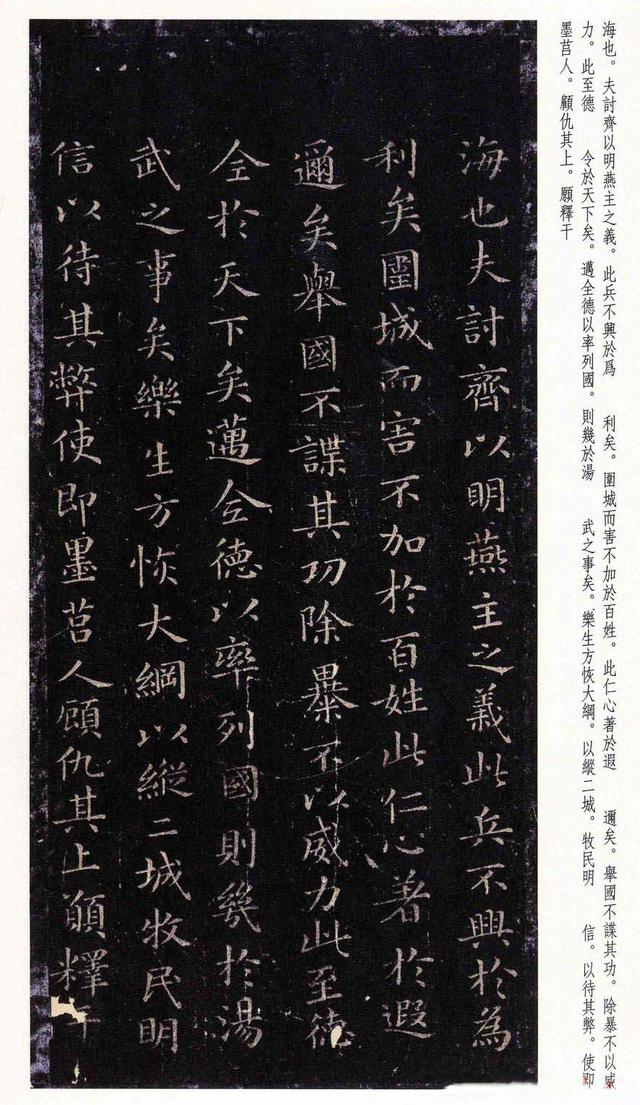 海也。夫討齊以明燕主之義。此兵不興於爲 利矣。圍城而害不加於百姓。此仁心著於遐 邇矣。舉國不諜其功。除暴不以威
力。此至德 令於天下矣。邁全德以率列國。則幾於湯 武之事矣。樂生方恢大綱。以縱二城。牧民明 信。以待其弊。使即
墨莒人。顧仇其上。願釋干
海也夫討齊以明燕主之義此兵不興於為
利矣圍城而害不加於百姓此仁心著於遐
邇矣舉國不謀其功除暴不以威力此至德
全於天下矣邁全德以率列國則幾於湯
武之事矣樂生方恢大綱以縱二城牧民明
信以待其弊使即墨莒人顧仇其上願釋干